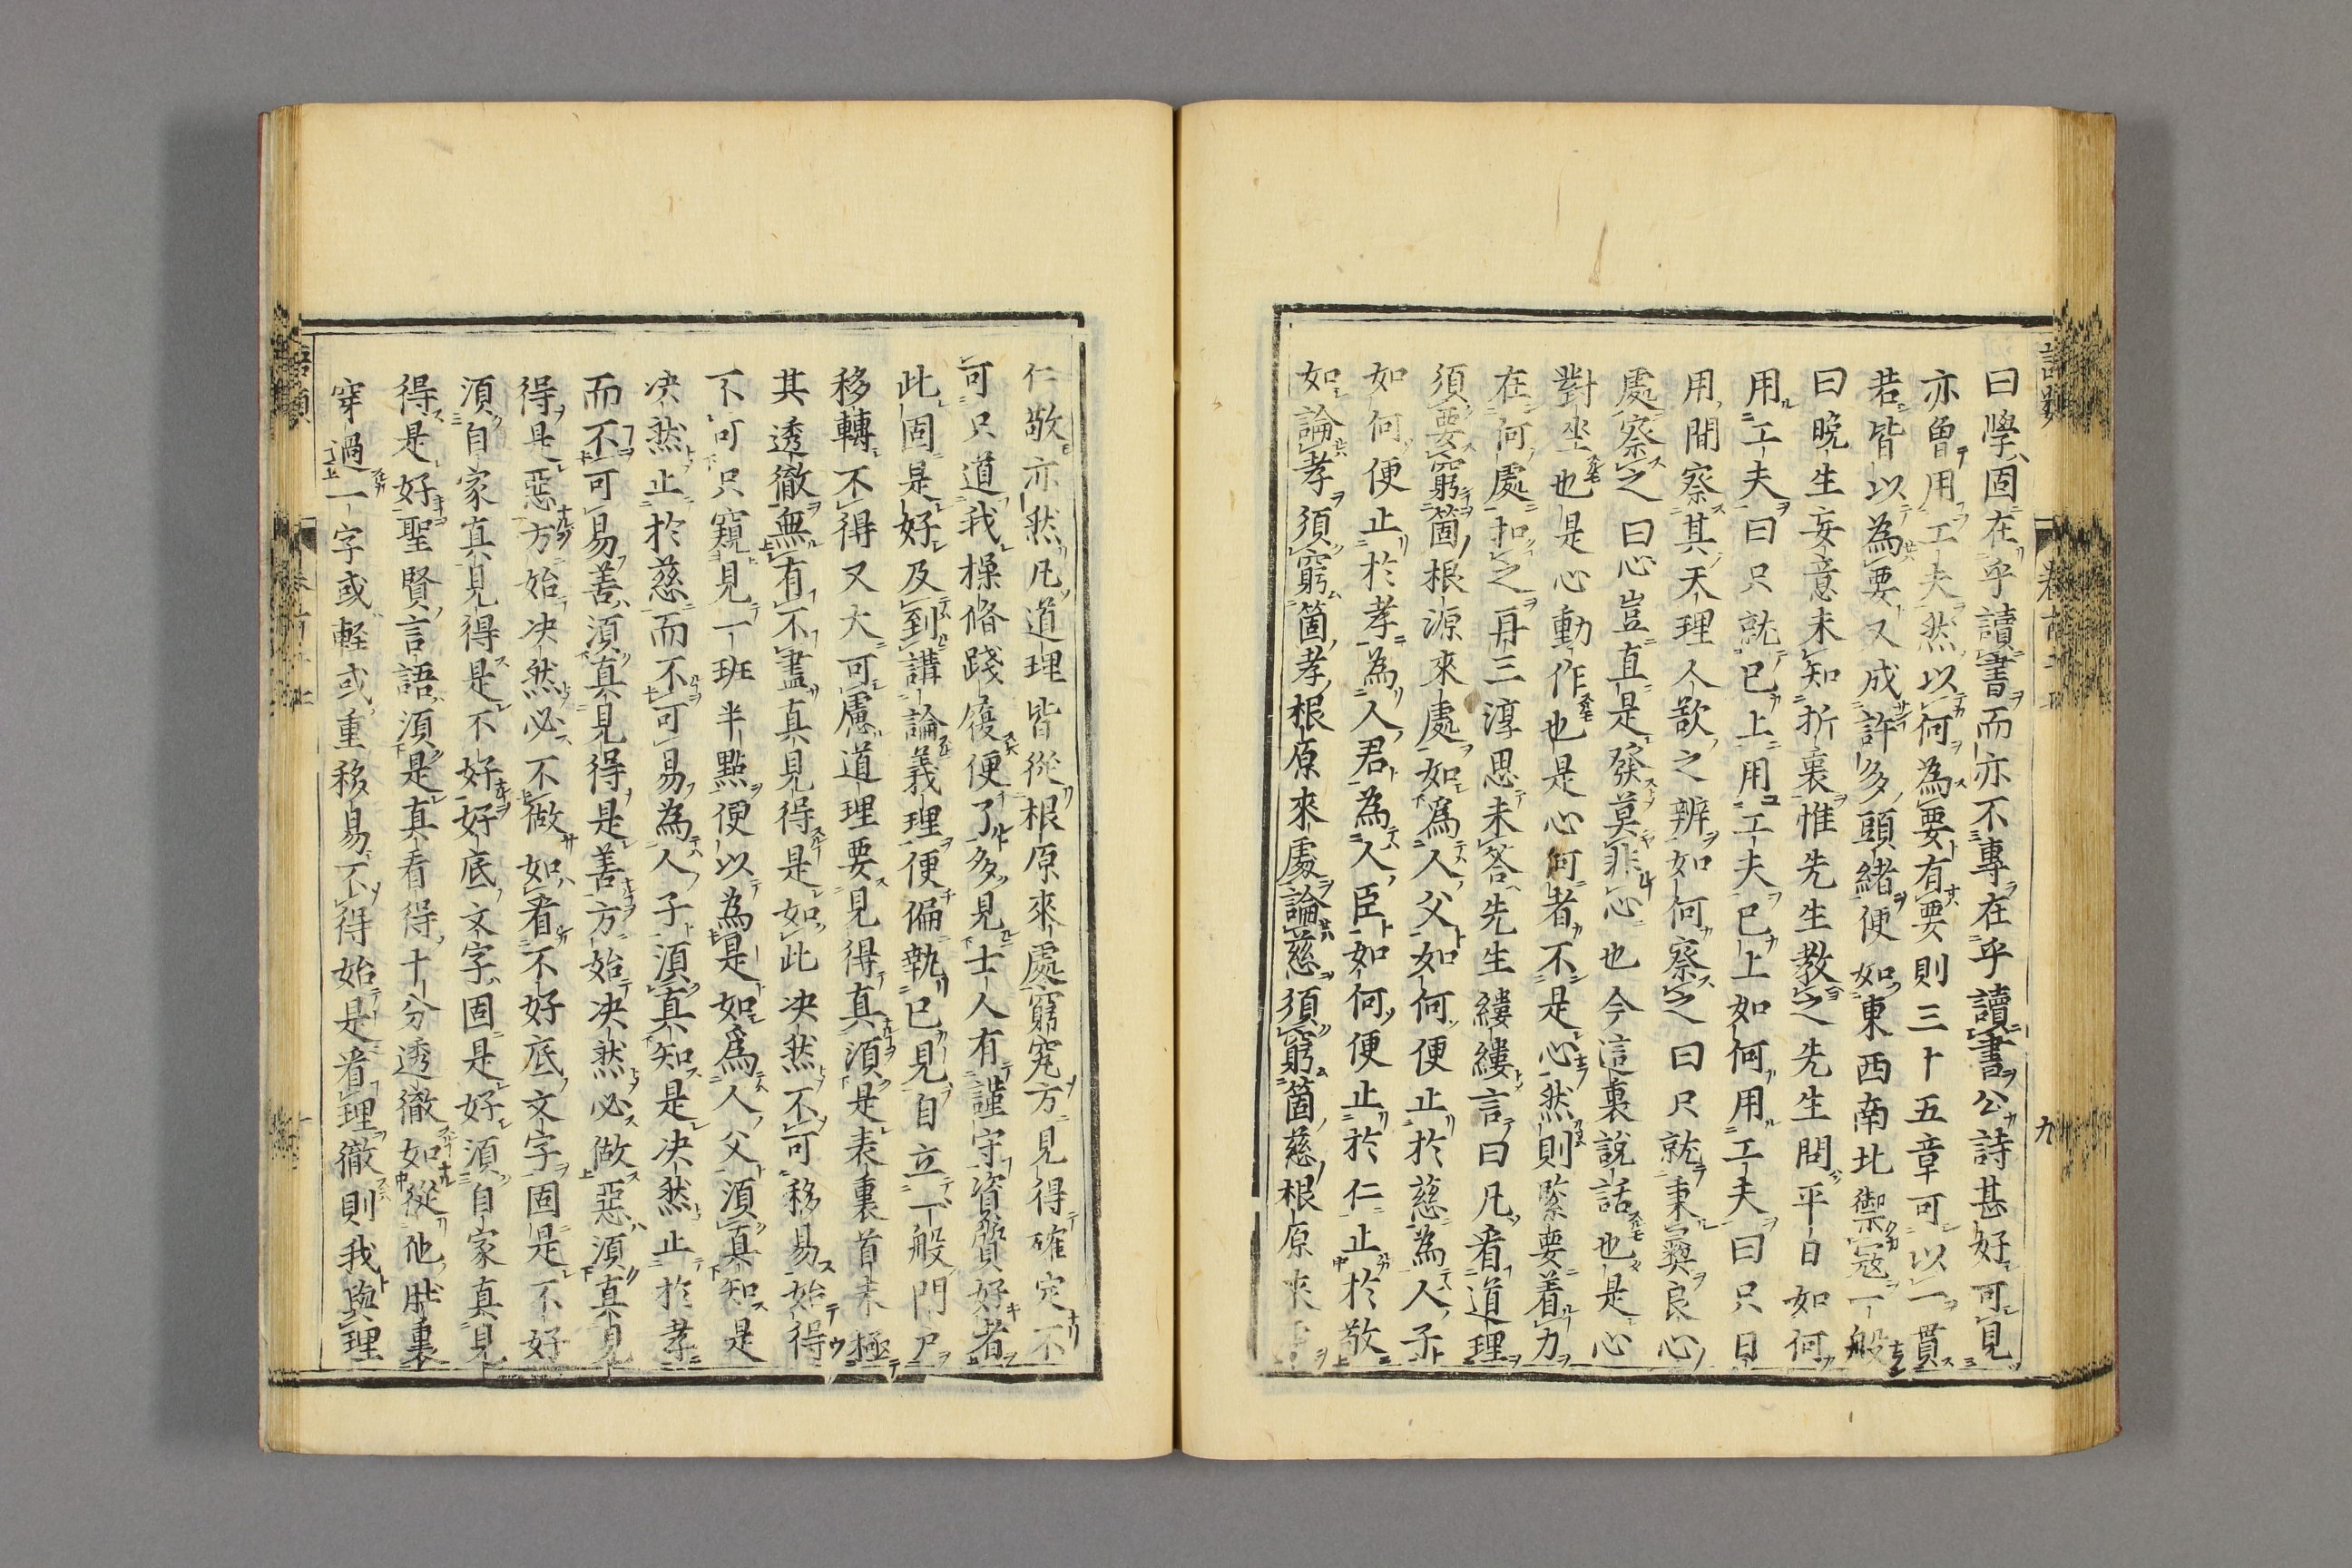 曰學固在乎讀書而亦不專在乎讀書公詩甚好可見
亦曾用工夫然以何為要有要則三十五章可以一貫
若皆以為要又成許多頭緒便如東西南北禦寇一般
曰晚生妄意未知折衷惟先生教之先生問平日如何
用工夫曰只就已上用工夫已上如何用工夫曰只日
用間察其天理人欲之辨如何察之曰只就秉彝良心
處察之曰心豈直是發莫非心也今這裏說話也是心
對坐也是心動作也是心何者不是心然則緊要着力
在何處扣之再三淳思未荅先生縷縷言曰凡看道理
須要窮箇根源來處如為人父如何便止於慈為人子
如何便止於孝為人君為人臣如何便止於仁止於敬
如論孝須窮箇孝根原來處論慈須窮箇慈根原來
仁敬亦然凡道理皆從根原來處窮究方見得確定不
可只道我操脩踐履便了多見士人有謹守資質好者
此固是好及到講論義理便偏執已見自立一般門戶
移轉不得又大可慮道理要見得真須是表裏首末極
其透徹無有不盡真見得是如此决然不可移易始得
不可只窺見一班半點便以為是如為人父須真知是
决然止於慈而不可易為人子須真知是决然止於孝
而不可易善須真見得是善方始决然必做惡須真見
得是惡方始决然必不做如看不好底文字固是不好
須自家真見得是不好好底文字固是好須自家真見
得是好聖賢言語須是真看得十分透徹如從他肚裏
穿過一字或輕或重移易不得始是看理徹則我與理
語類
卷百十七
九